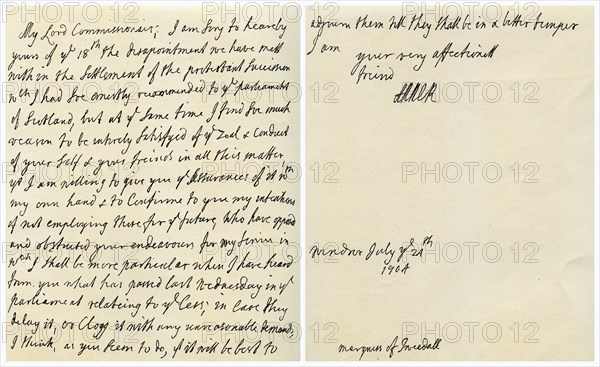 My Lord Commissioner; I am sory to hear by
yours of ye 18th the disapointment we have mett
with in the Settlement of the protestant Succession
wch I had soe ernestly recommended to ye parliament
of Scotland, but at ye same time I find soe much
reason to be entirely satisfyed of ye Zeal & conduct
of your self & your friends in all this matter,
yt I am willing to give you ye Assurances of it wth
my own hand & to confirme to you my intentions
of not employing those for ye future, who have oposed
and obstructed your endeavours for my Service in
wch I shall be more particular when I have heard
from you what has passed last Wednesday in ye
parliament relateing to ye Cess; in case they
delay it, or Clogg it with any unreasonable demand,
I think, as you seem to do, yt it will be best to
adjourn them till they shall be in a better temper
I am
your very affectionett
freind
ANNE R
windsor July ye 24th
1704
marquess of Tweedall
PHOTO 12